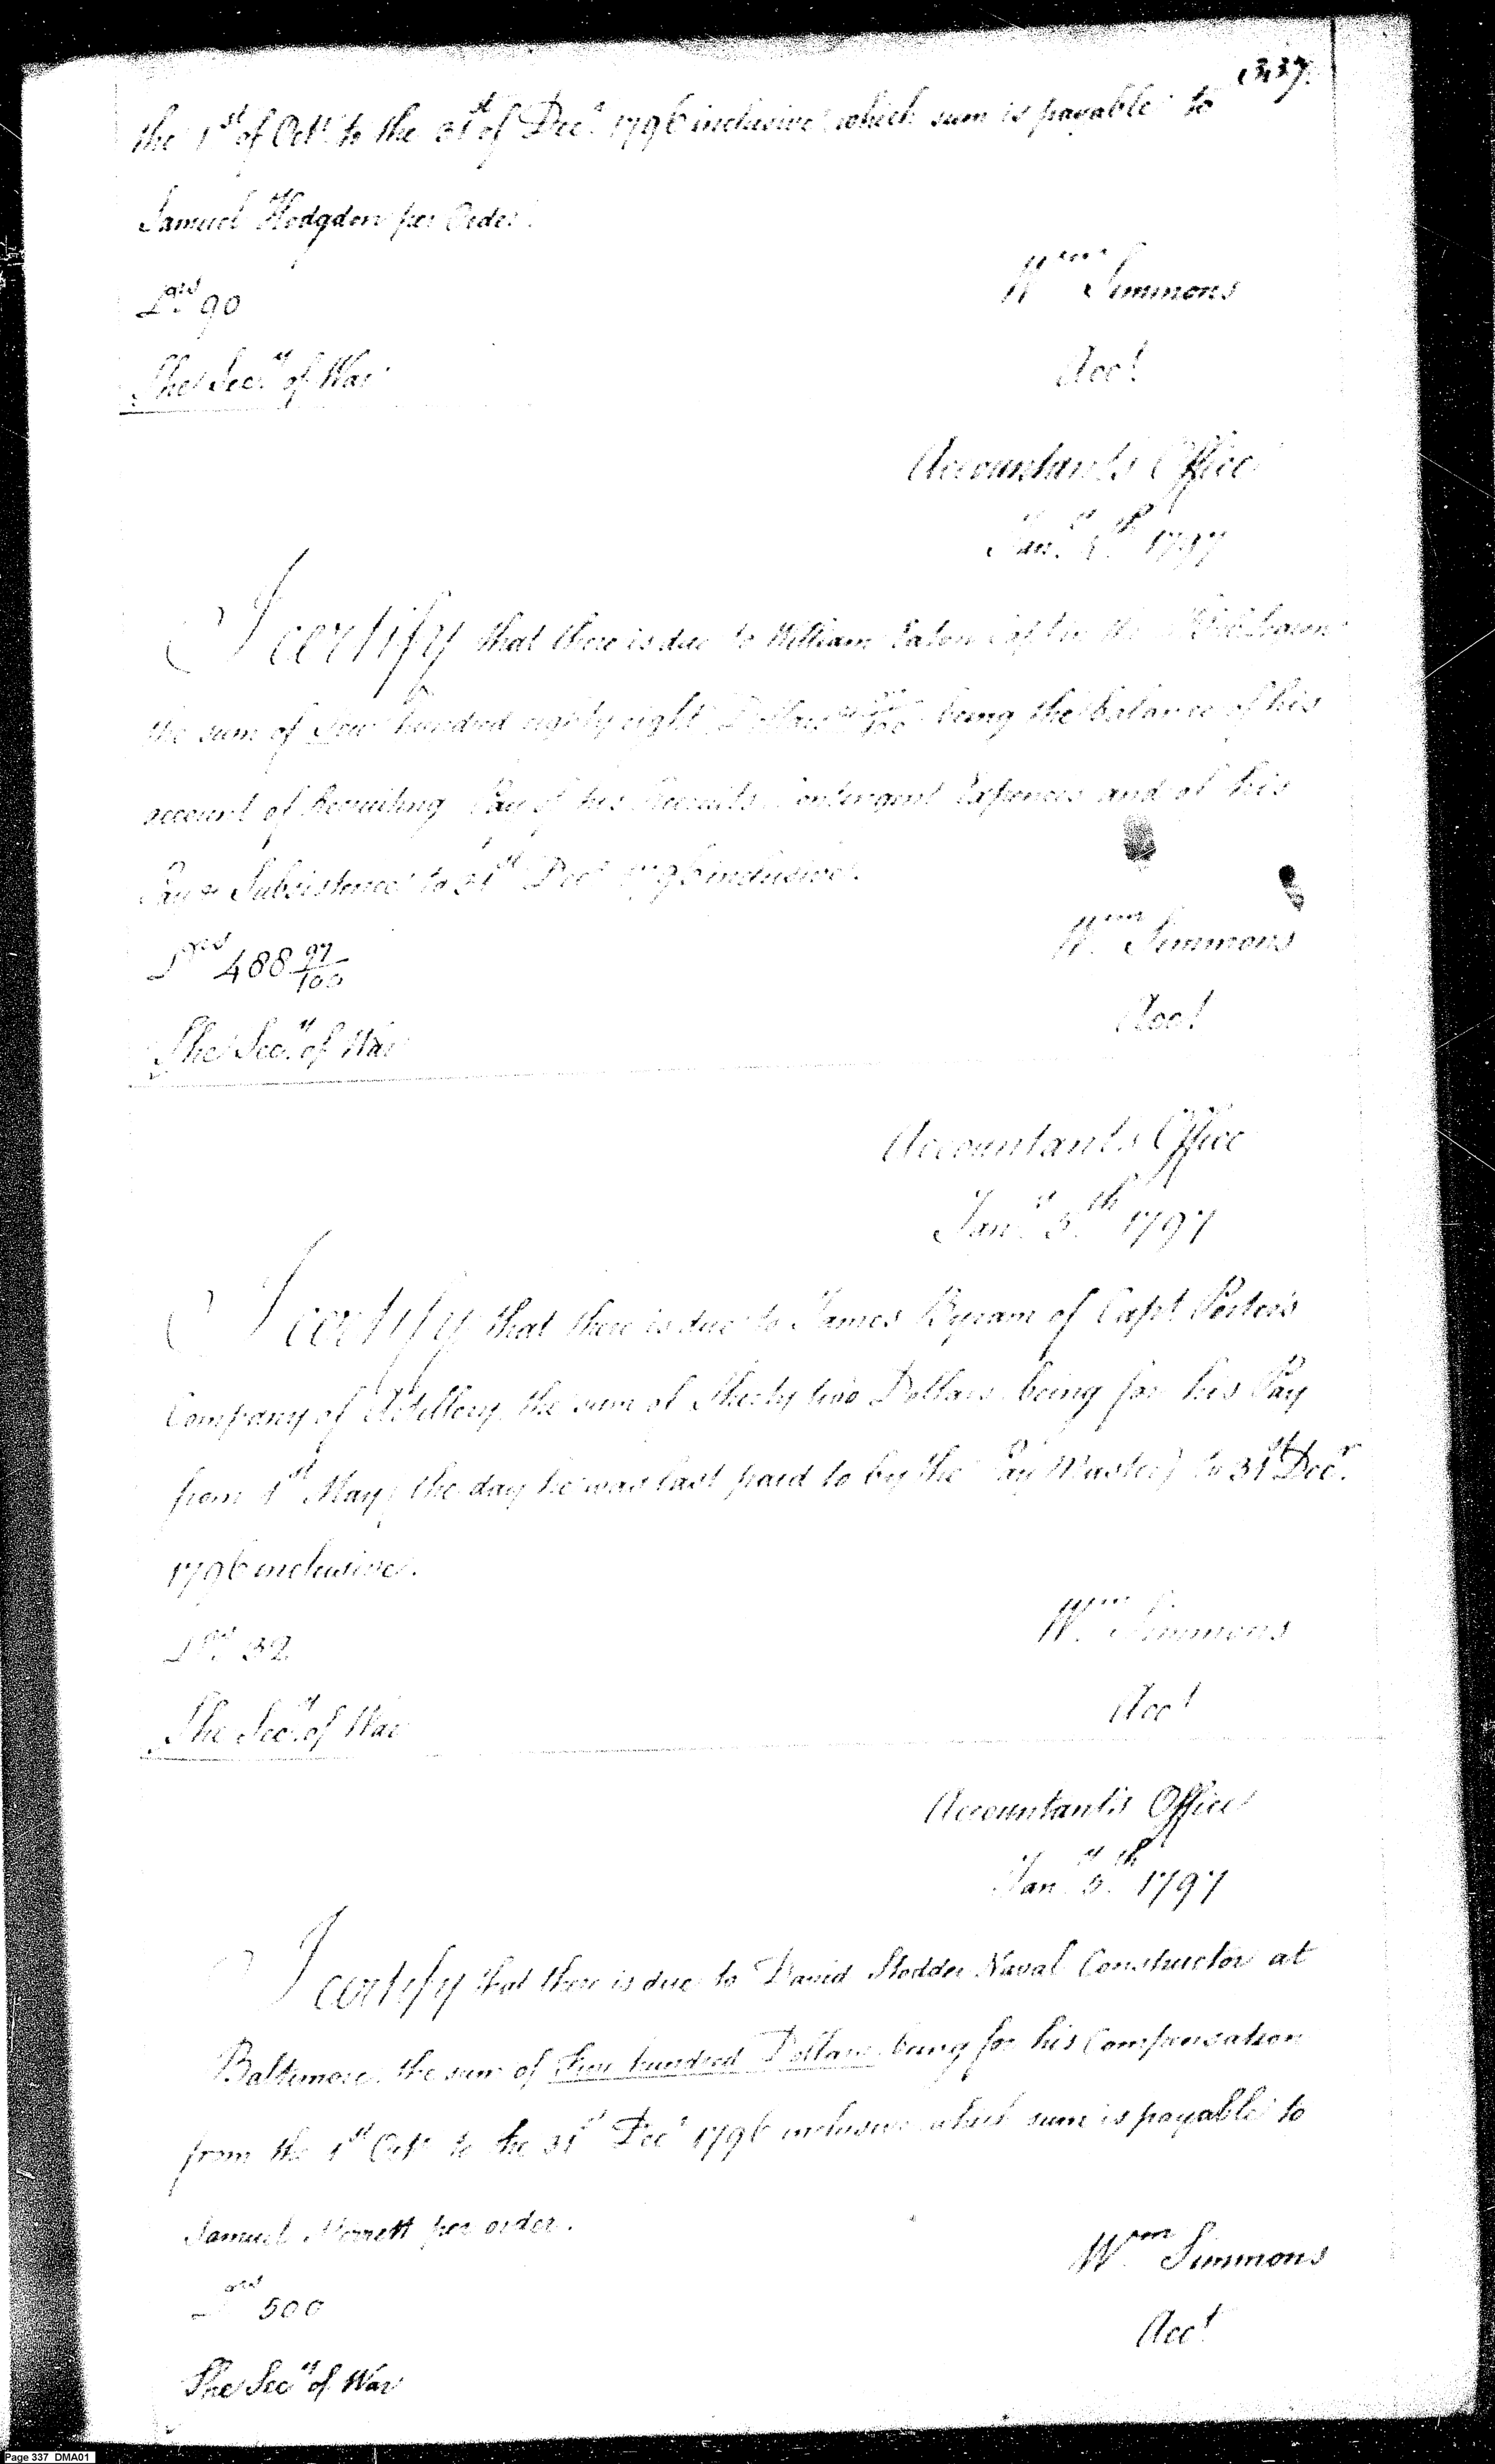 337.
the 1st of Octr. to the 31st of Decr. 1796 inclusive which sum is payable to
Samuel Hodgdon per Order.
Drs 90
Wm Simmons
The Secy. of War
Acct.
Accountant's Office
Jany. 5th 1797
I certify that there is due to William Eaton Capt in the
the sum of Four hundred eighty eight Dollars 97/100 being the balance of his
account of Recruiting Pay of his Recruits Contingent Expences and of his
Pay & Subsistence to 31st Decr 1796 inclusive.
Wm Simmons
Drs 488 97/100
Acct.
The Secy. of War
Accountant's Office
Jany. 5th 1797
I certify that there is due to James Byram of Capt Porter's
Company of Artillery the sum of Thirty two Dollars being for his Pay
from 1st May (the day he was last paid to by the Pay Master) to 31st Decr.
1796 inclusive.
Wm Simmons
Drs. 32
Acct
The Secy. of War
Accountant's Office
Jany. 5th 1797
I certify that there is due to David Stodder Naval Constructor at
Baltimore the sum of Five hundred Dollars being for his Compensation
from the 1st Octr to the 31st Decr 1796 inclusive which sum is payable to
Samuel per order.
Wm Simmons
Drs 500
Acct.
The Secy of War
Page 337 DMA01